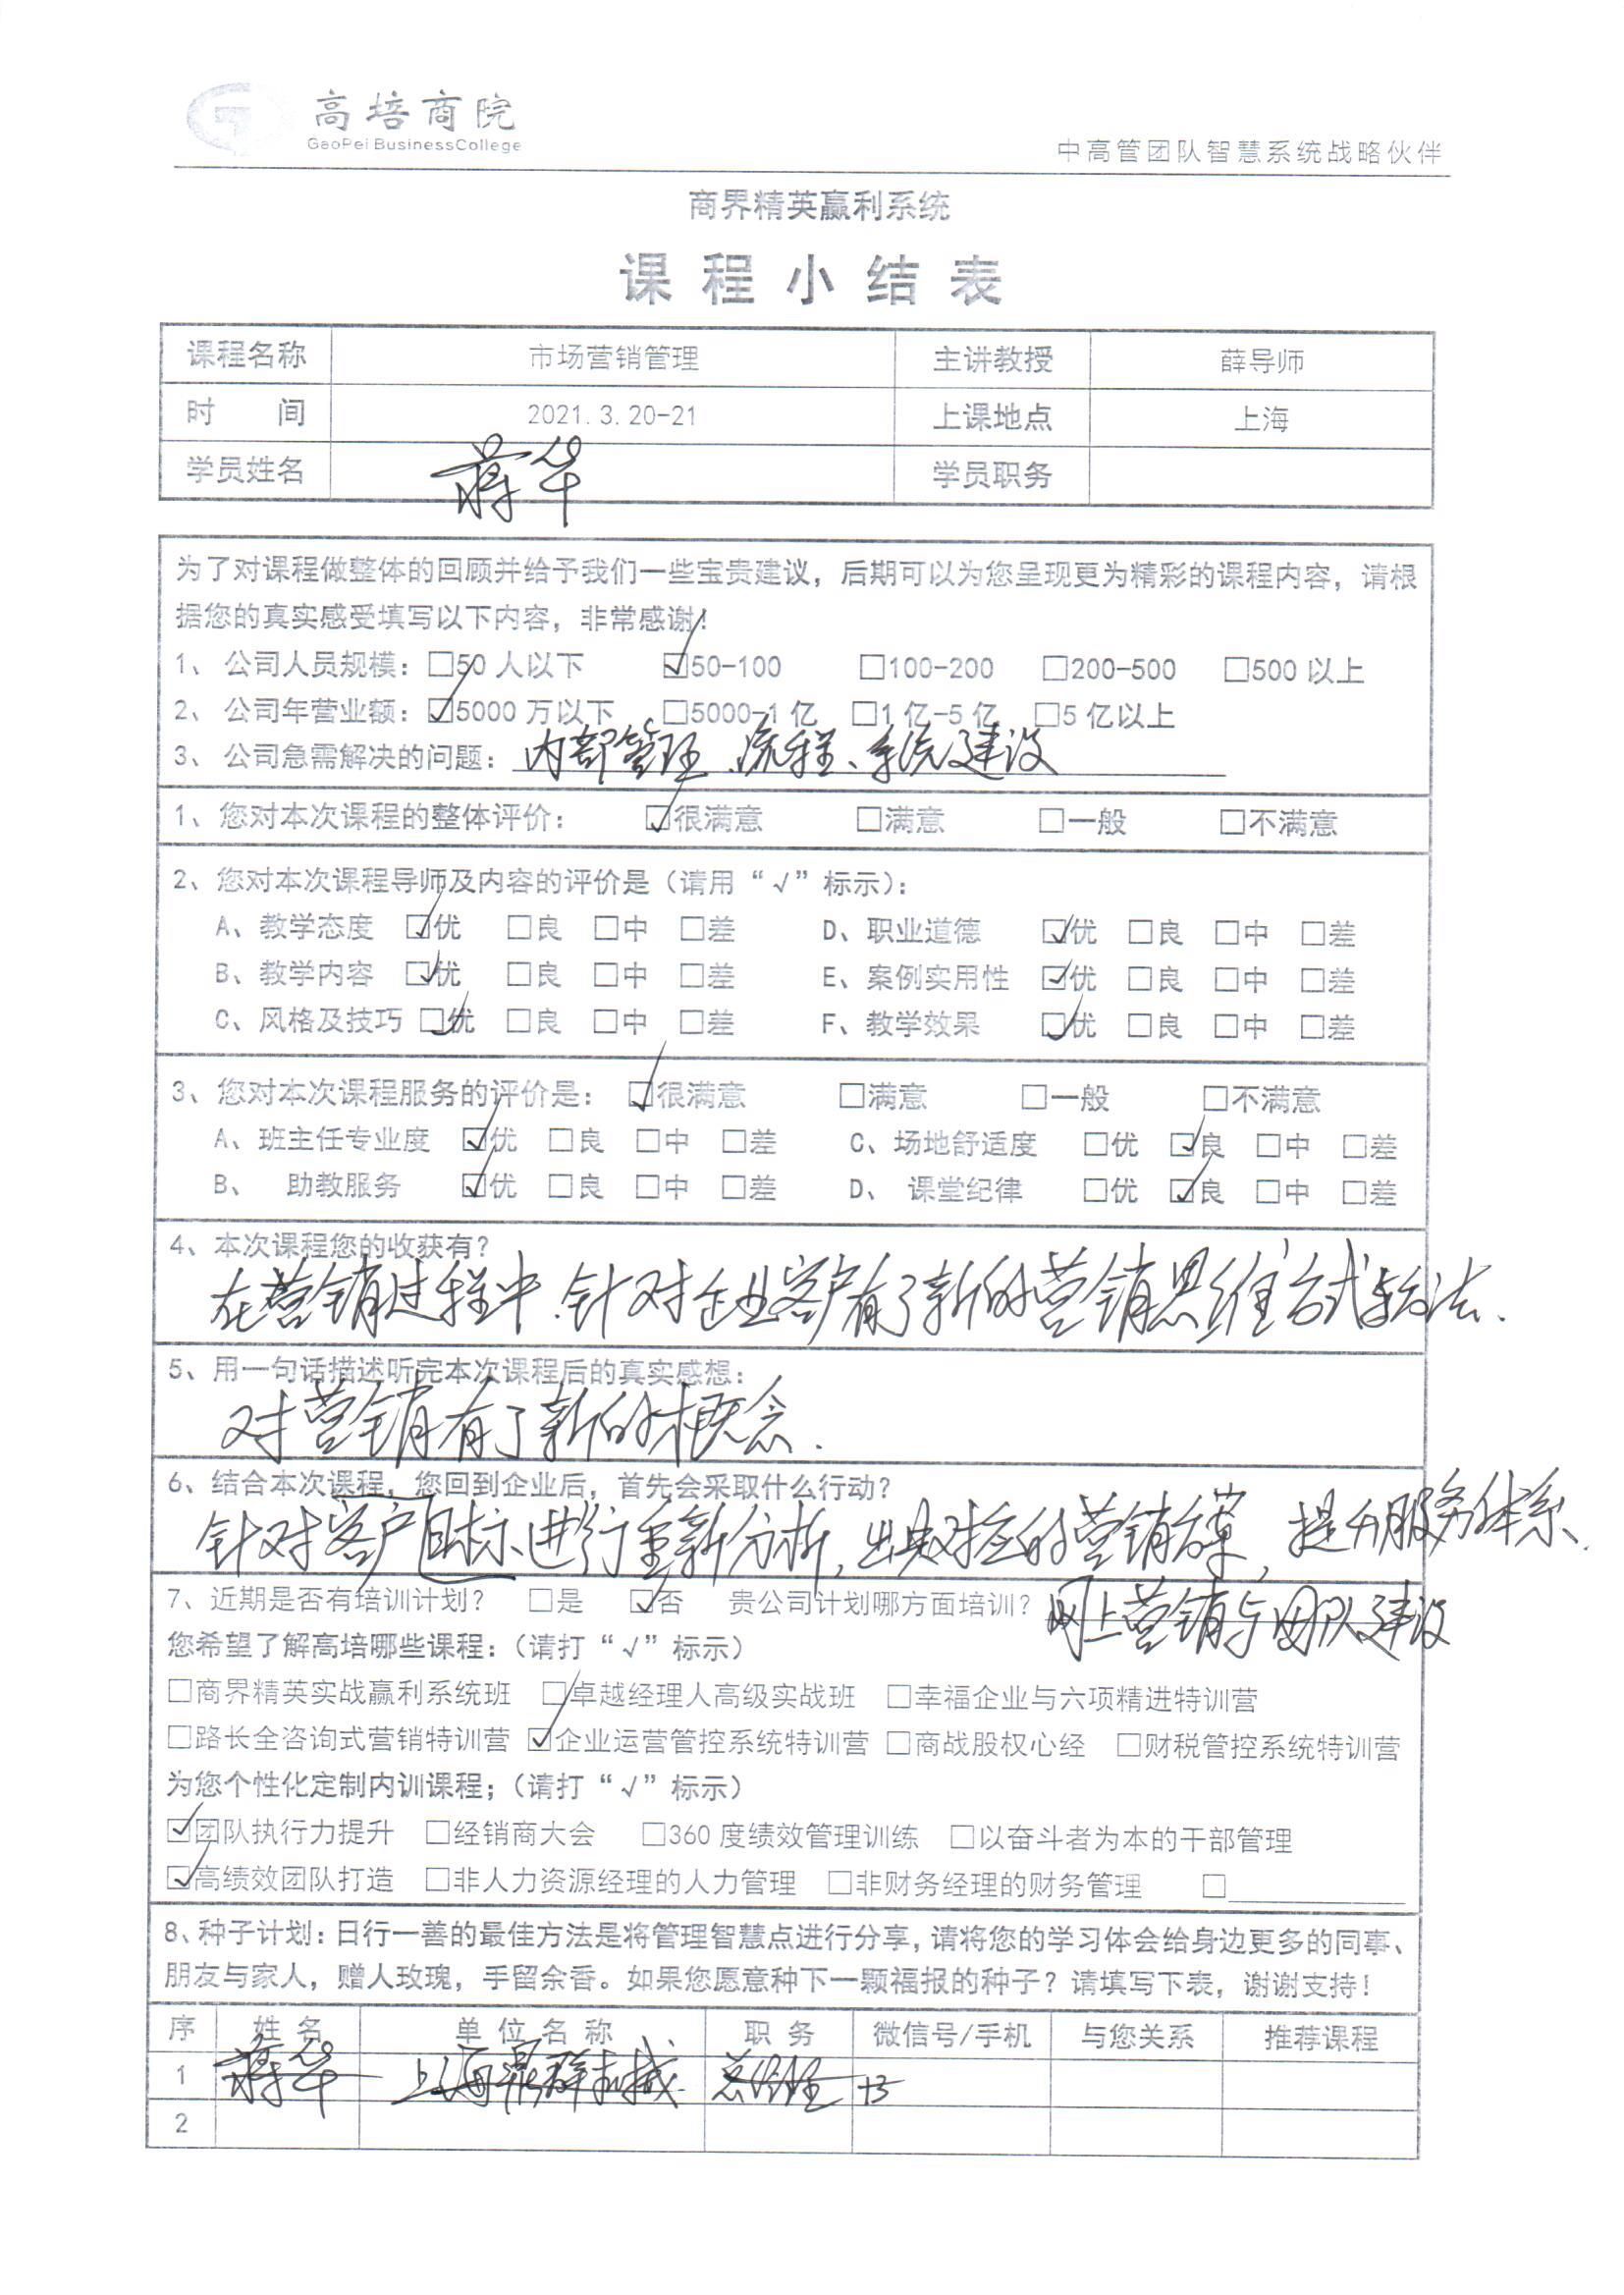 高培商院
GaoPei BusinessCollege
中高管团队智慧系统战略伙伴
商界精英赢利系统
课程小结表
课程名称 市场营销管理 主讲教授 薛导师
时 间 2021.3.20-21 上课地点 上海
学员姓名 蒋华 学员职务
为了对课程做整体的回顾并给予我们一些宝贵建议，后期可以为您呈现更为精彩的课程内容，请根
据您的真实感受填写以下内容，非常感谢！
1、 公司人员规模：□50 人以下 ☑50-100 □100-200 □200-500 □500 以上
2、 公司年营业额：☑5000 万以下 □5000-1 亿 □1 亿-5 亿 □5 亿以上
3、 公司急需解决的问题：内部管理、流程、系统建设
1、您对本次课程的整体评价： ☑很满意 □满意 □一般 □不满意
2、您对本次课程导师及内容的评价是（请用“√”标示）：
A、教学态度 ☑优 □良 □中 □差 D、职业道德 ☑优 □良 □中 □差
B、教学内容 ☑优 □良 □中 □差 E、案例实用性 ☑优 □良 □中 □差
C、风格及技巧 ☑优 □良 □中 □差 F、教学效果 ☑优 □良 □中 □差
3、您对本次课程服务的评价是： ☑很满意 □满意 □一般 □不满意
A、班主任专业度 ☑优 □良 □中 □差 C、场地舒适度 □优 ☑良 □中 □差
B、 助教服务 ☑优 □良 □中 □差 D、 课堂纪律 □优 ☑良 □中 □差
4、本次课程您的收获有？
在营销过程中.针对企业客户有了新的营销思维方式与方法.
5、用一句话描述听完本次课程后的真实感想：
对营销有了新的概念.
6、结合本次课程，您回到企业后，首先会采取什么行动？
针对客户目标进行重新分析，出具对应的营销方案，提升服务体系.
7、近期是否有培训计划？ □是 ☑否 贵公司计划哪方面培训？网上营销与团队建设
您希望了解高培哪些课程：（请打“√”标示）
□商界精英实战赢利系统班 □卓越经理人高级实战班 □幸福企业与六项精进特训营
□路长全咨询式营销特训营 ☑企业运营管控系统特训营 □商战股权心经 □财税管控系统特训营
为您个性化定制内训课程；（请打“√”标示）
☑团队执行力提升 □经销商大会 □360 度绩效管理训练 □以奋斗者为本的干部管理
☑高绩效团队打造 □非人力资源经理的人力管理 □非财务经理的财务管理 □
8、种子计划：日行一善的最佳方法是将管理智慧点进行分享，请将您的学习体会给身边更多的同事、
朋友与家人，赠人玫瑰，手留余香。如果您愿意种下一颗福报的种子？请填写下表，谢谢支持！
序 姓 名 单 位 名 称 职 务 微信号/手机 与您关系 推荐课程
1 蒋华 上海鼎群机械 总经理 13
2